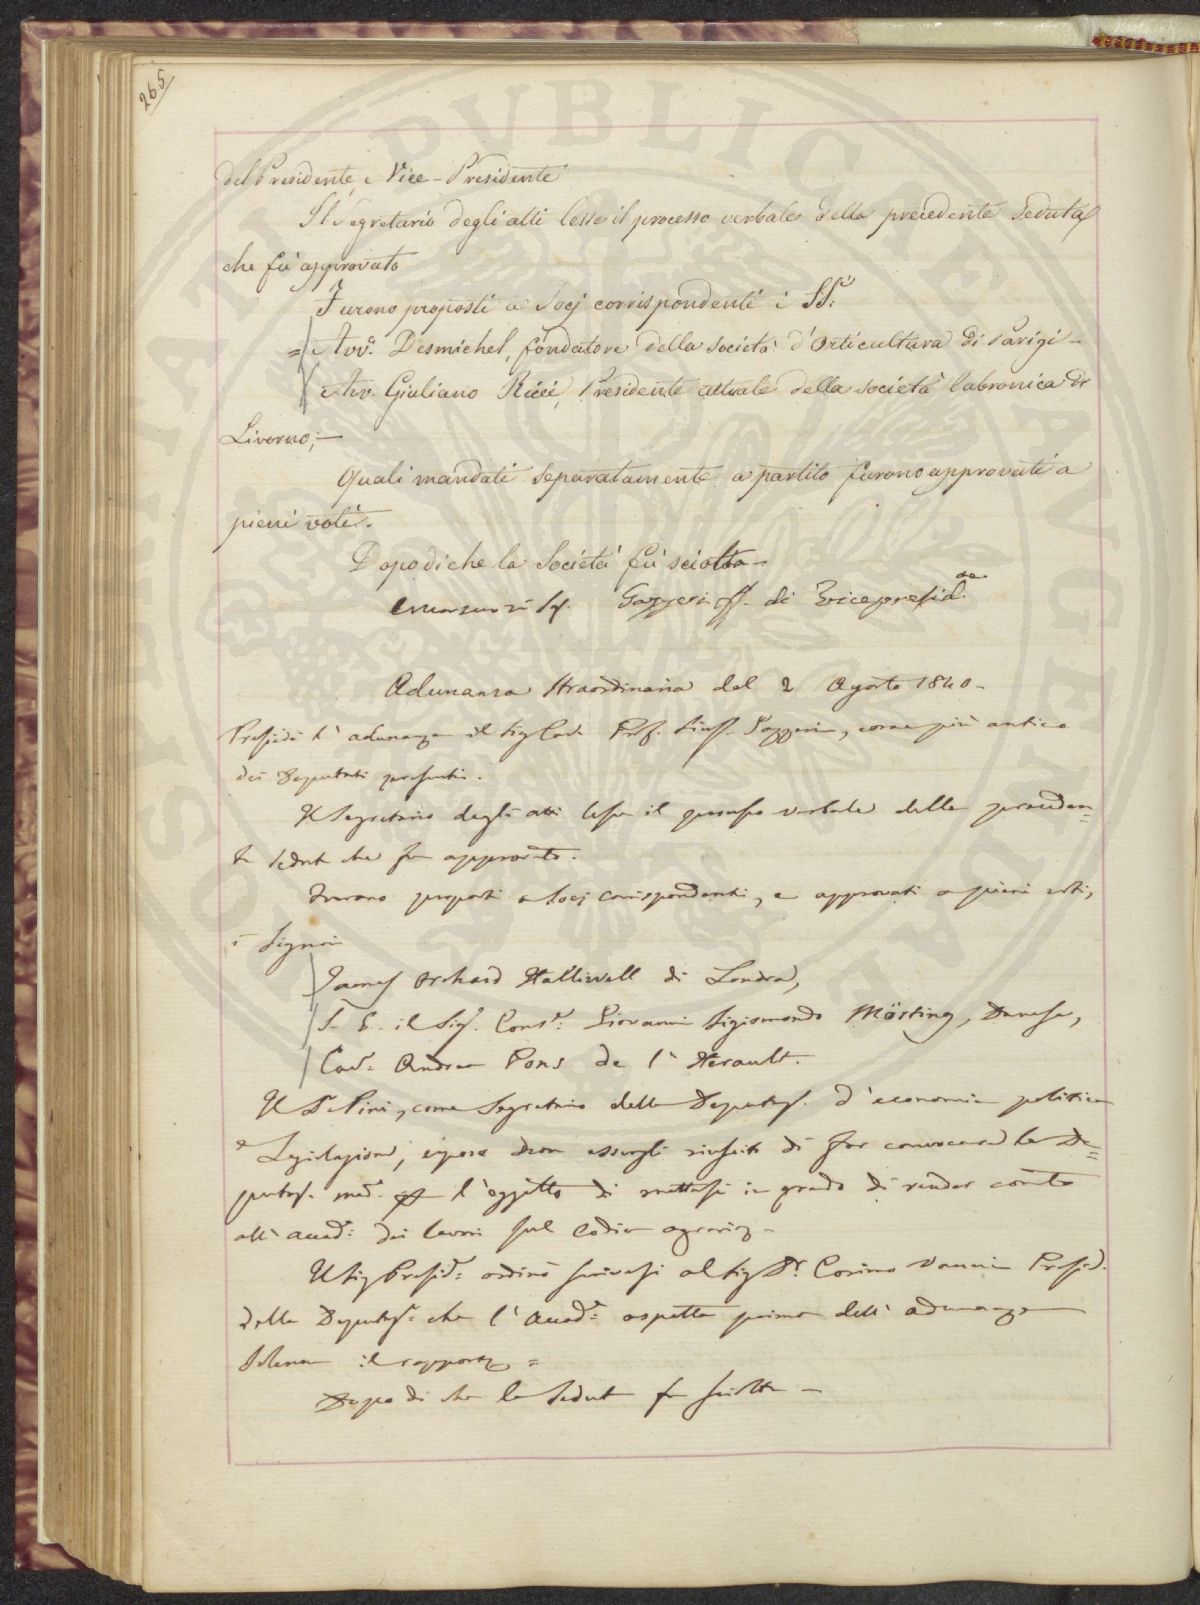 265
del Presidente, e Vice-Presidente
Il Segretario degli atti lesse il processo verbale della precedente seduta
che fù approvato
Furono proposti a Socj corrispondenti i SS.i
= Avv.o Desmichel, fondatore della società d'Orticultura di Parigi -
Avv. Giuliano Ricci, Presidente attuale della società labronica di
Livorno; -
Quali mandati separatamente a partito furono approvati a
pieni voti.
Dopodiche la Società fù sciolta -
Gazzeri ff. di Vicepresid.te
Adunanza straordinaria del 2 Agosto 1840 -
Presiedè l'adunanza il Sig Cav. Prof. Gius. Gazzeri, come più antico
dei Deputati presenti.
Il Segretario degli atti lesse il processo verbale della preceden=
te seduta che fu approvato.
Furono proposti a Socj corrispondenti, e approvati a pieni voti,
i Signori
James Orchard Halliwell di Londra,
S. E. il Sig. Cons.r: Giovanni Sigismondo Mösting, Danese,
Cav.r Andrea Pons de l'Herault.
Il D. Pini, come Segretario della Deputaz. d'economia politica
e Legislazione, espose non essergli riuscito di far convocare la De=
putaz. med. per l'oggetto di mettersi in grado di render conto
all'Accad.: dei lavori sul Codice agrario -
Il Sig Presid.: ordinò scrivasi al Sig Dr. Cosimo Vanni Presid.
della Deputaz. che l'Accad.: aspetta prima dell'adunanza
Solenne il rapporto =
Dopo di che la seduta fu sciolta -